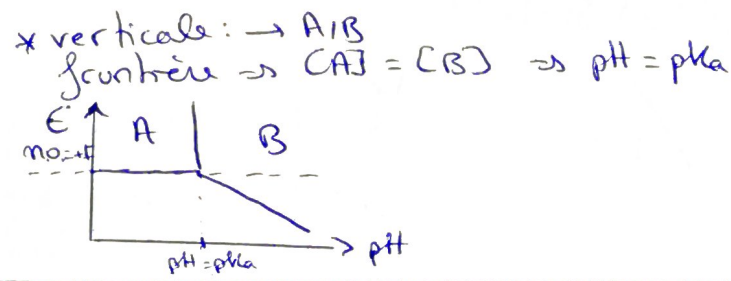 * verticale : → A/B
frontière → [A] = [B] ⇒ pH = pKa
E
A
B
n.o. = +I
pH
pH = pKa